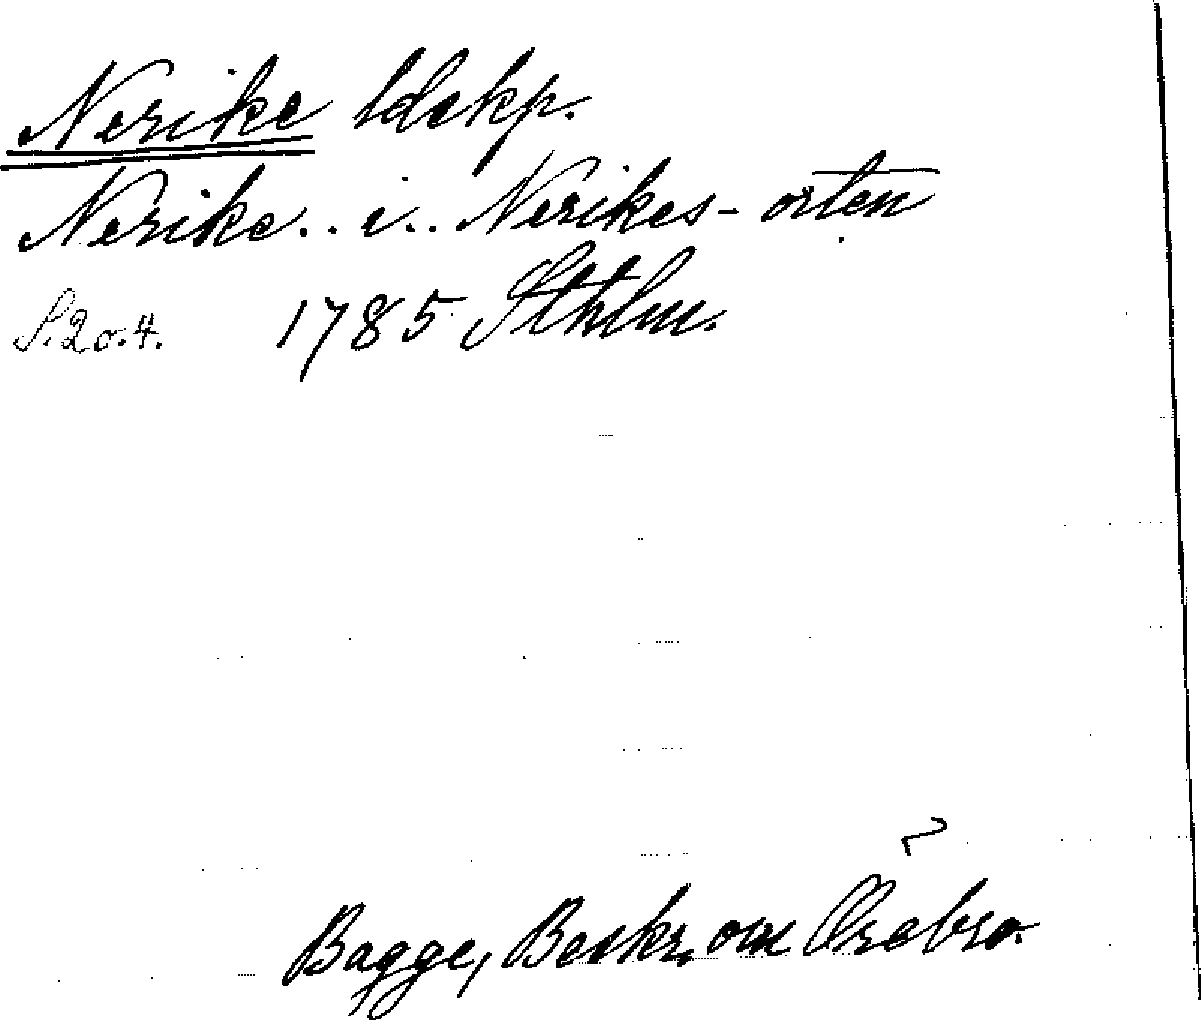 Nerike ldskp.
Nerike.. i.. Nerikes-orten
S. 2 o. 4. 1785 Sthlm.
Bagge, Beskr. om Örebro.